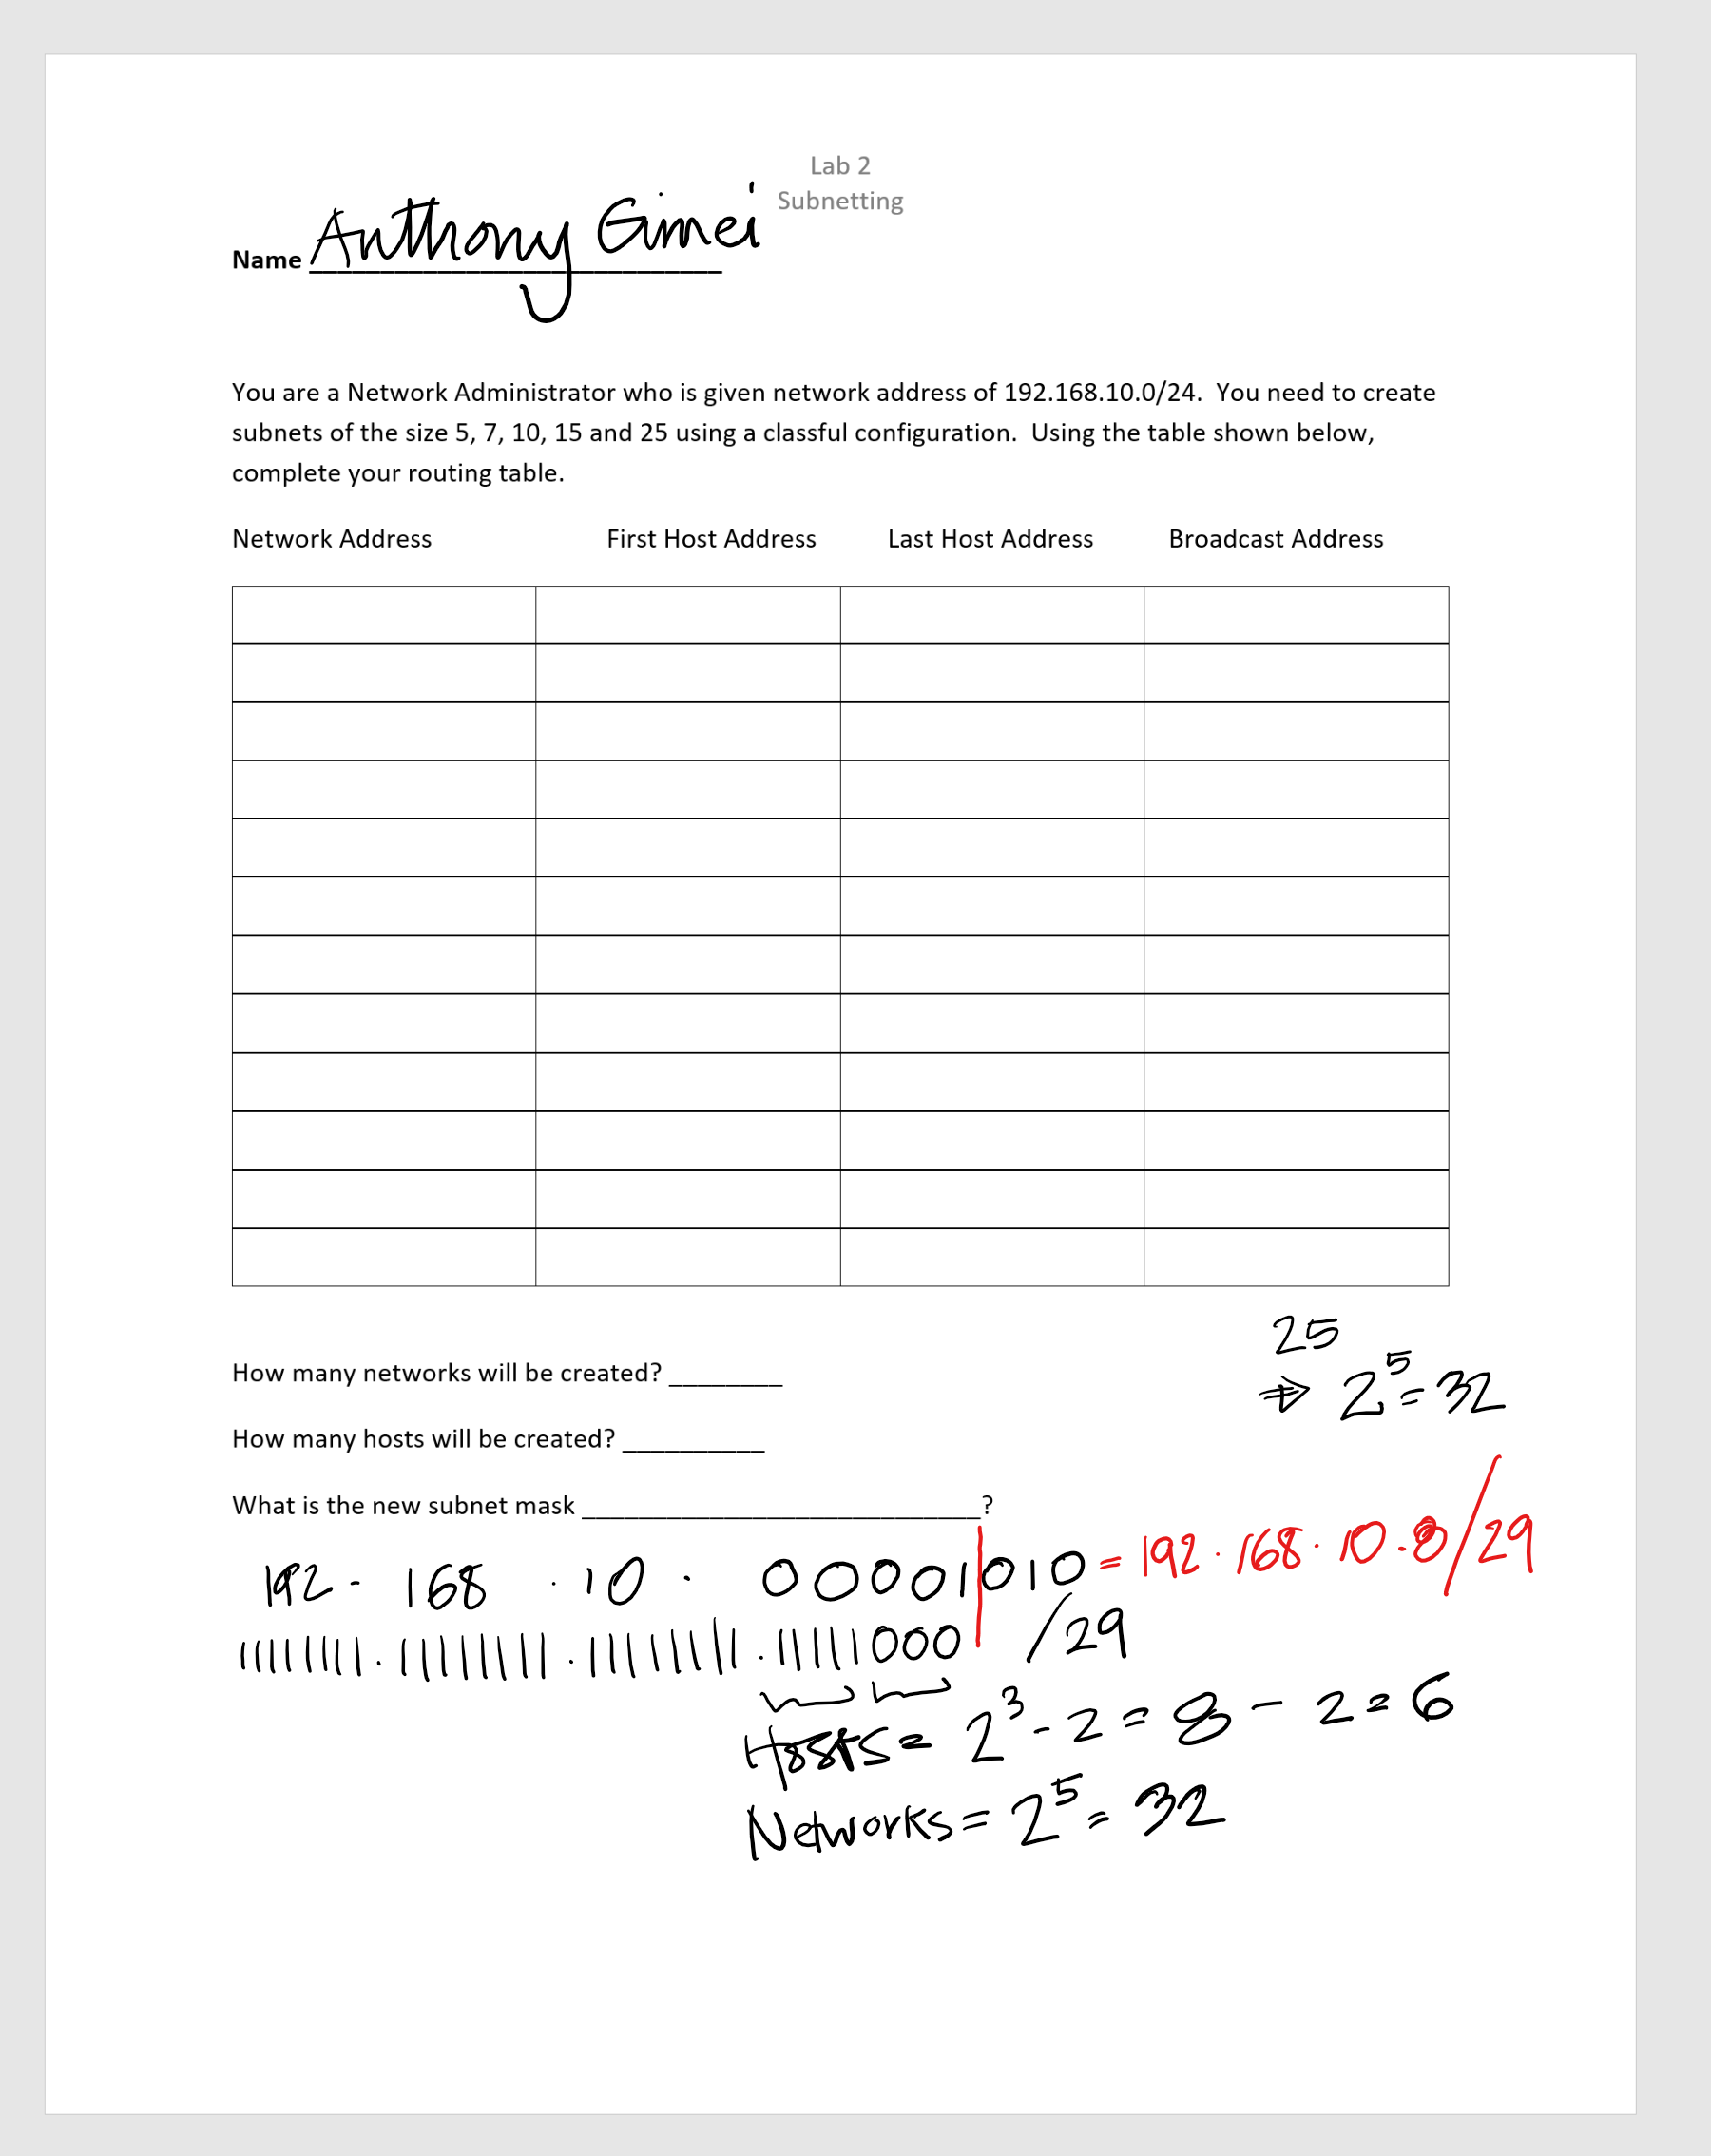 Lab 2
Subnetting
Name Anthony Gimei
You are a Network Administrator who is given network address of 192.168.10.0/24. You need to create
subnets of the size 5, 7, 10, 15 and 25 using a classful configuration. Using the table shown below,
complete your routing table.
Network Address First Host Address Last Host Address Broadcast Address
25
How many networks will be created? ________
⇒ 2^5 = 32
How many hosts will be created? __________
What is the new subnet mask ____________________________?
192 . 168 . 10 . 00001|010 = 192.168.10.8/29
11111111.11111111.11111111.11111000 /29
Hosts = 2^3 - 2 = 8 - 2 = 6
Networks = 2^5 = 32